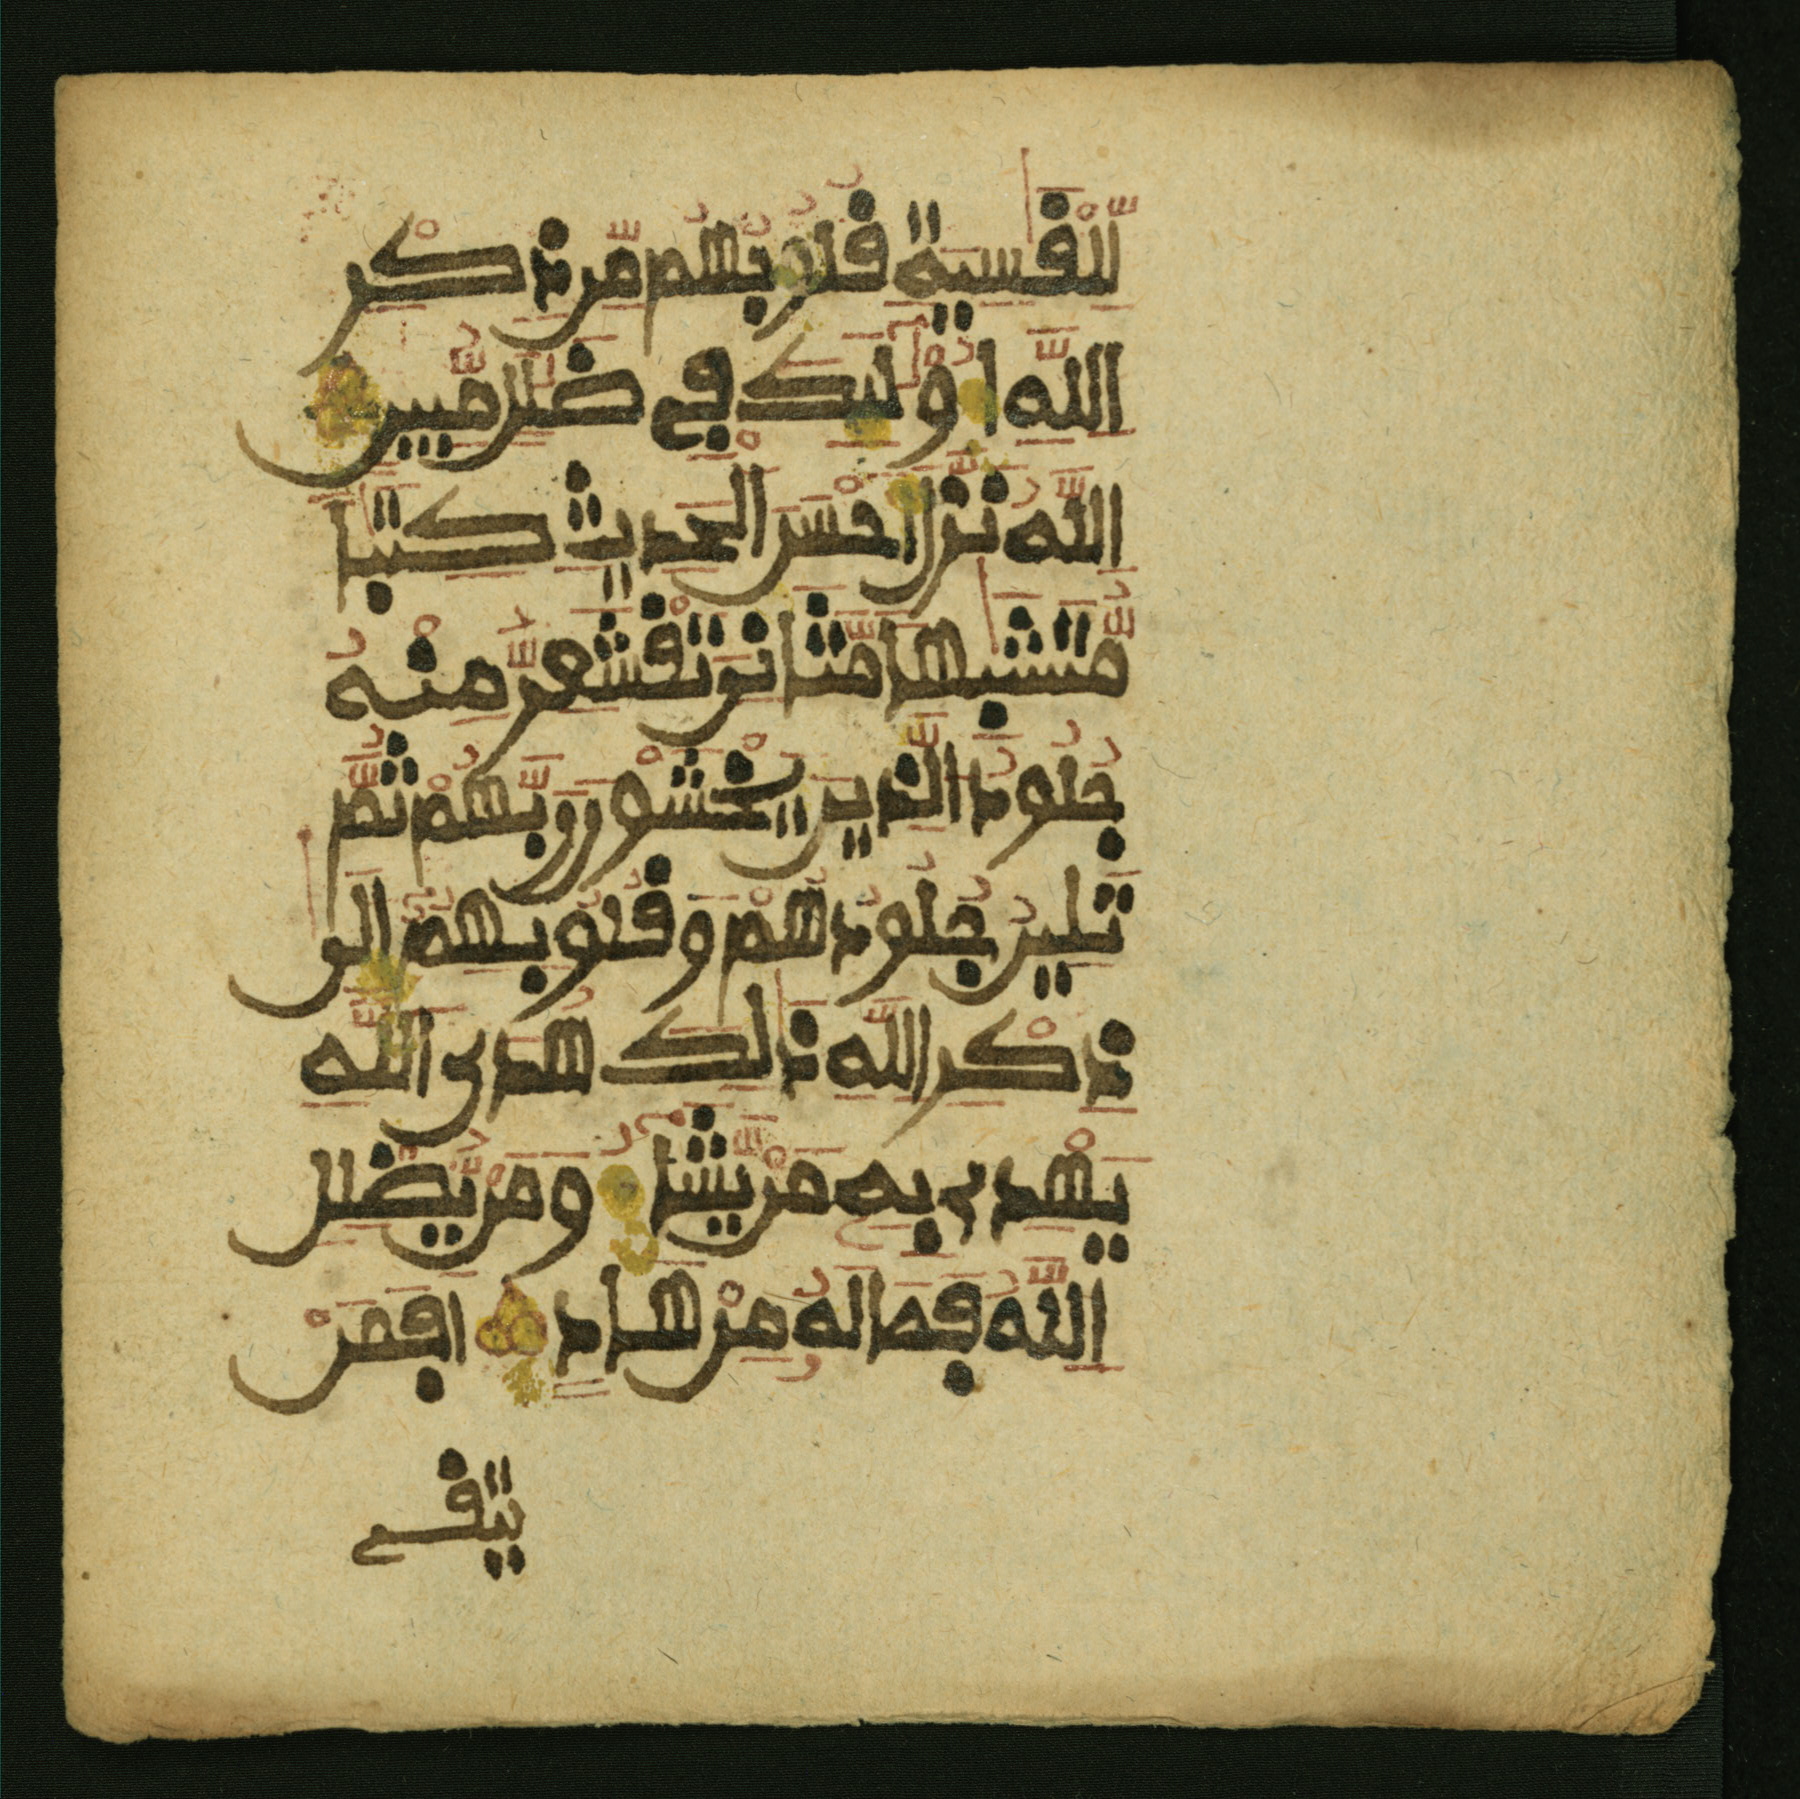 لِّلْقَٰسِيَةِ قُلُوبُهُم مِّن ذِكْرِ
اللَّهِ أُوْلَٰئِكَ فِي ضَلَٰلٍ مُّبِينٍ
اللَّهُ نَزَّلَ أَحْسَنَ الْحَدِيثِ كِتَٰبًا
مُّتَشَٰبِهًا مَّثَانِيَ تَقْشَعِرُّ مِنْهُ
جُلُودُ الَّذِينَ يَخْشَوْنَ رَبَّهُمْ ثُمَّ
تَلِينُ جُلُودُهُمْ وَقُلُوبُهُمُ إِلَىٰ
ذِكْرِ اللَّهِ ذَٰلِكَ هُدَى اللَّهِ
يَهْدِي بِهِ مَنْ يَّشَاءُ وَمَنْ يُّضْلِلِ
اللَّهُ فَمَا لَهُ مِنْ هَادٍ أَفَمَنْ
يتقي